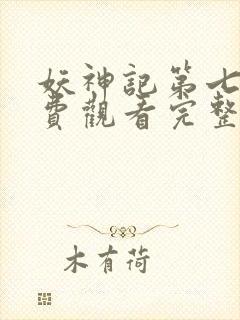 妖神記第七
費觀看完整
木有荷